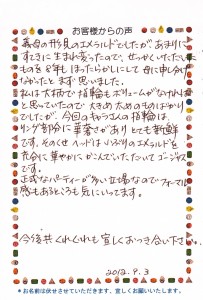 お客様からの声
義母の形見のエメラルドでしたが、あまりに
すてきに生まれ変ったので、せっかくいただいた
ものを8年もほったらかしにして母に申し分け
なかったと まず思いました。
私は大柄で指輪もボリュームがなければ
と思っていたので 大きめ太めのものばかり
でしたが、今回のキャラさんの指輪は、
リング部分に華奢があり とても新鮮
です。そのくせ ヘッドは いぶりのエメラルドを
充分に華やかに かこんでいただいて ゴージャス
です。
正式なパーティーが多い立場なので フォーマル
感もあるところも 気にいってます。
今後共くれぐれも宜しくおつき合い下さい。
2012.9.3
＊お名前は伏せさせていただきます。宜しくお願いいたします。